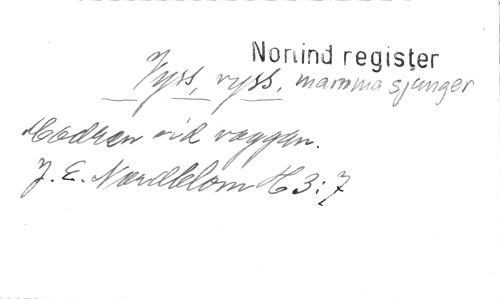 Nonind register
Vyss, vyss, mamma sjunger
Modren vid vaggan.
J. E. Nordblom H 3:7